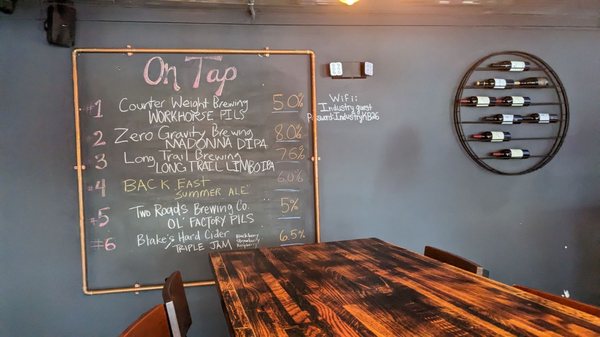 On Tap
#1 Counter Weight Brewing 5.0%
WORKHORSE PILS
2 Zero Gravity Brewing 8.0%
MADONNA DIPA
3 Long Trail Brewing 7.6%
LONG TRAIL LIMBO IPA
#4 BACK EAST 6.0%
SUMMER ALE
#5 Two Roads Brewing Co. 5%
OL' FACTORY PILS
#6 Blake's Hard Cider 6.5%
TRIPLE JAM Blackberry Strawberry Raspberry
WiFi:
Industry guest